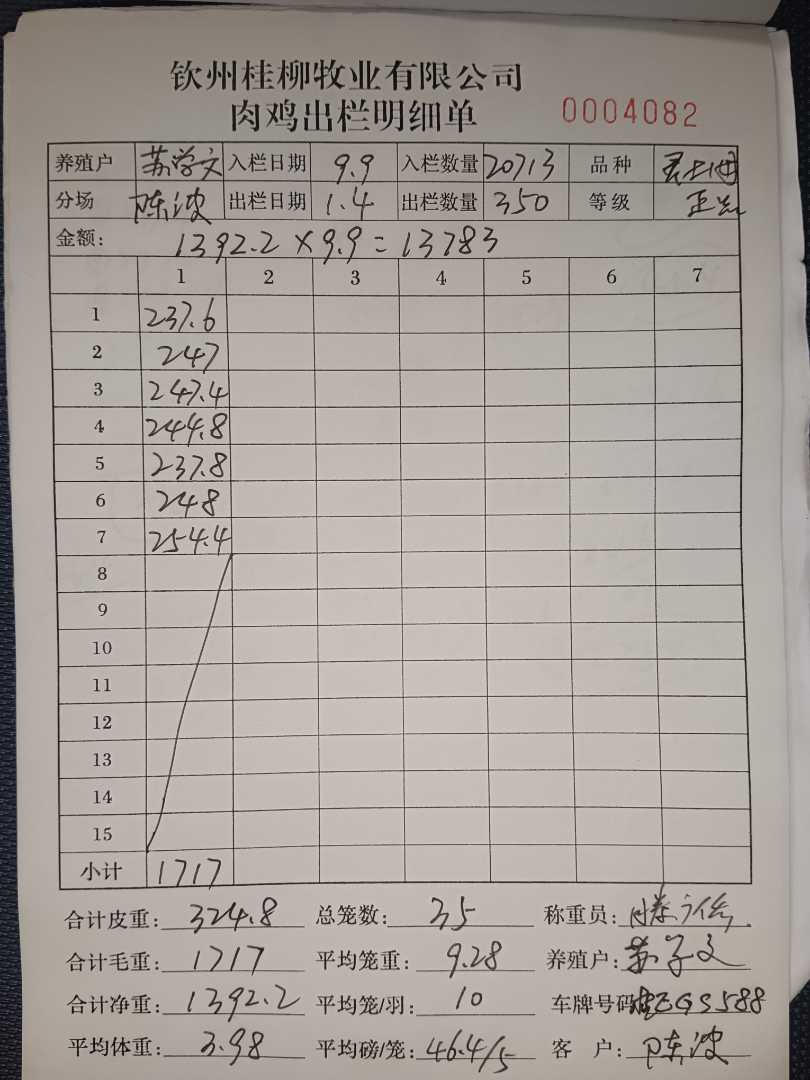 钦州桂柳牧业有限公司
肉鸡出栏明细单 0004082
养殖户 苏学文 入栏日期 9.9 入栏数量 20713 品种
分场 陈波 出栏日期 1.4 出栏数量 350 等级 正
金额: 1392.2×9.9=13783
1 2 3 4 5 6 7
1 237.6
2 247
3 247.4
4 244.8
5 237.8
6 248
7 254.4
8
9
10
11
12
13
14
15
小计 1717
合计皮重: 324.8 总笼数: 35 称重员:
合计毛重: 1717 平均笼重: 9.28 养殖户: 苏学文
合计净重: 1392.2 平均笼/羽: 10 车牌号码 GS588
平均体重: 3.98 平均磅/笼: 46.4/5 客 户: 陈波